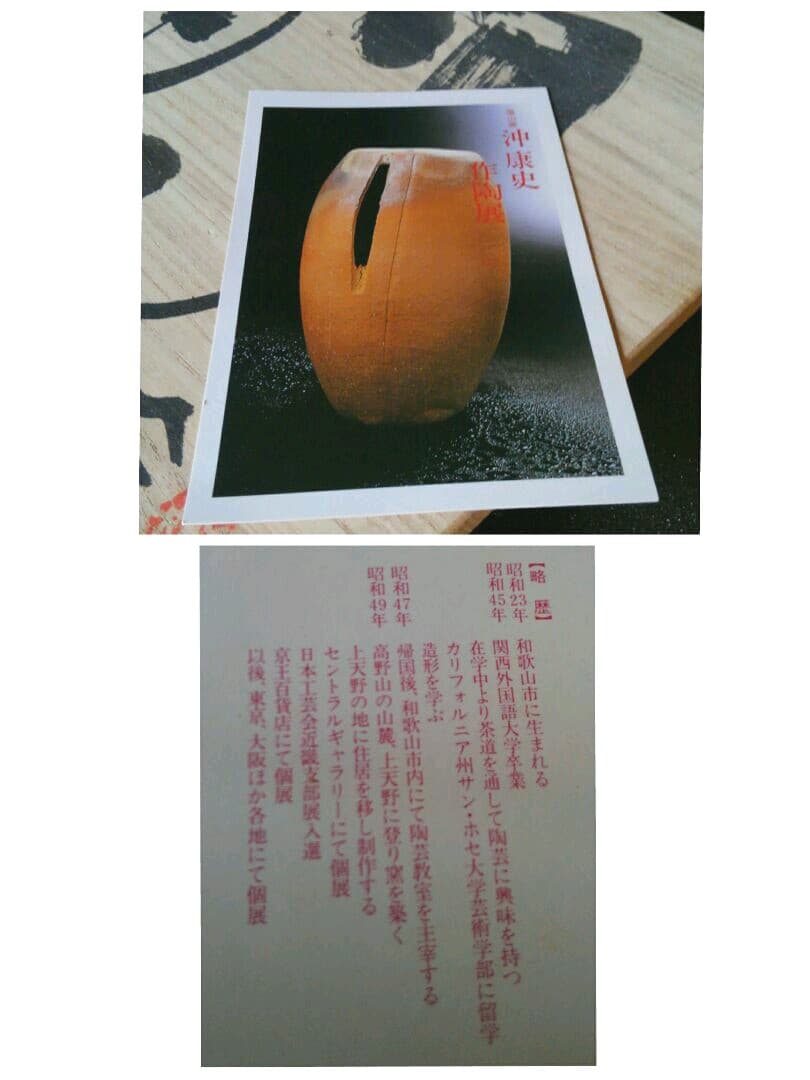 沖康史
作陶展
【略歴】
昭和23年 和歌山市に生まれる
昭和45年 関西外国語大学卒業
在学中より茶道を通して陶芸に興味を持つ
カリフォルニア州サン・ホセ大学芸術学部に留学
造形を学ぶ
昭和47年 帰国後、和歌山市内にて陶芸教室を主宰する
昭和49年 高野山の山麓、上天野に登り窯を築く
上天野の地に住居を移し制作する
セントラルギャラリーにて個展
日本工芸会近畿支部展入選
京王百貨店にて個展
以後、東京、大阪ほか各地にて個展